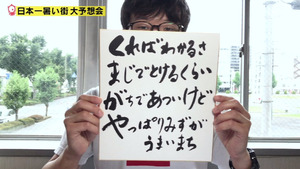 日本一暑い街 大予想会
くればわかるさ
まじでとけるくらい
がちであついけど
やっぱりみずが
うまいまち